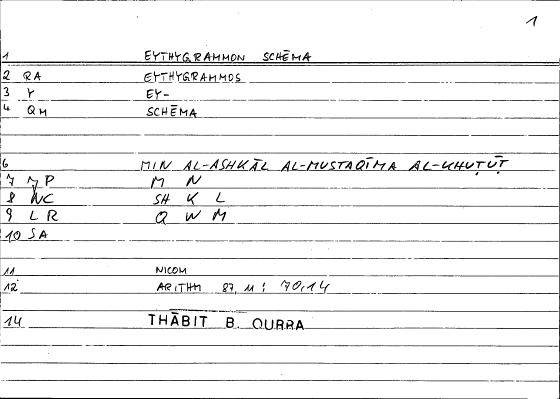 1
1 EYTHYGRAMMON SCHĒMA
2 QA EYTHYGRAMMOS
3 Y EY-
4 QM SCHĒMA
6 MIN AL-ASHKĀL AL-MUSTAQĪMA AL-KHUṬŪṬ
7 P M N
8 NC SH K L
9 LR Q W M
10 SA
11 NICOM
12 ARITHM 87, 11 : 70,14
14 THĀBIT B. QURRA